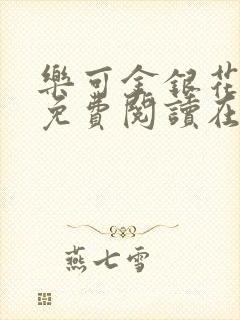 樂可金銀花
免費閱讀在
燕七雪